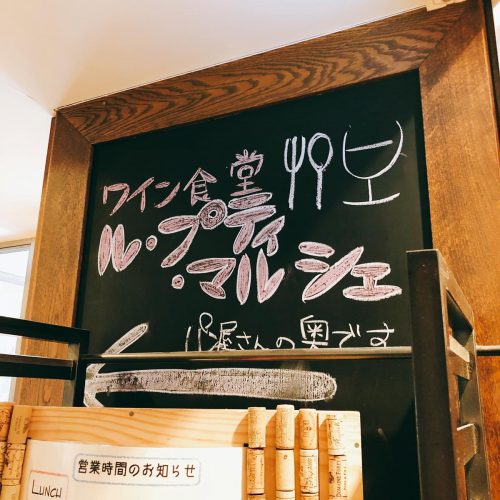 ワイン食堂
ル・プティ
・マルシェ
パン屋さんの奥です
営業時間のお知らせ
LUNCH